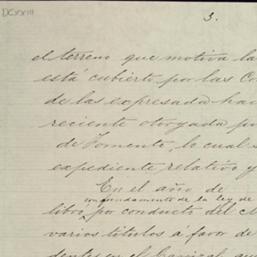 DCXXIII
3.
el terreno que motiva la
está cubierto por las Co
de las expresada hac
reciente otorgada po
de Fomento, lo cual s
expediente relativo y
En el año de
en fundamento de la ley de
libró, por conducto del M
varios títulos á favor de
dentes en el